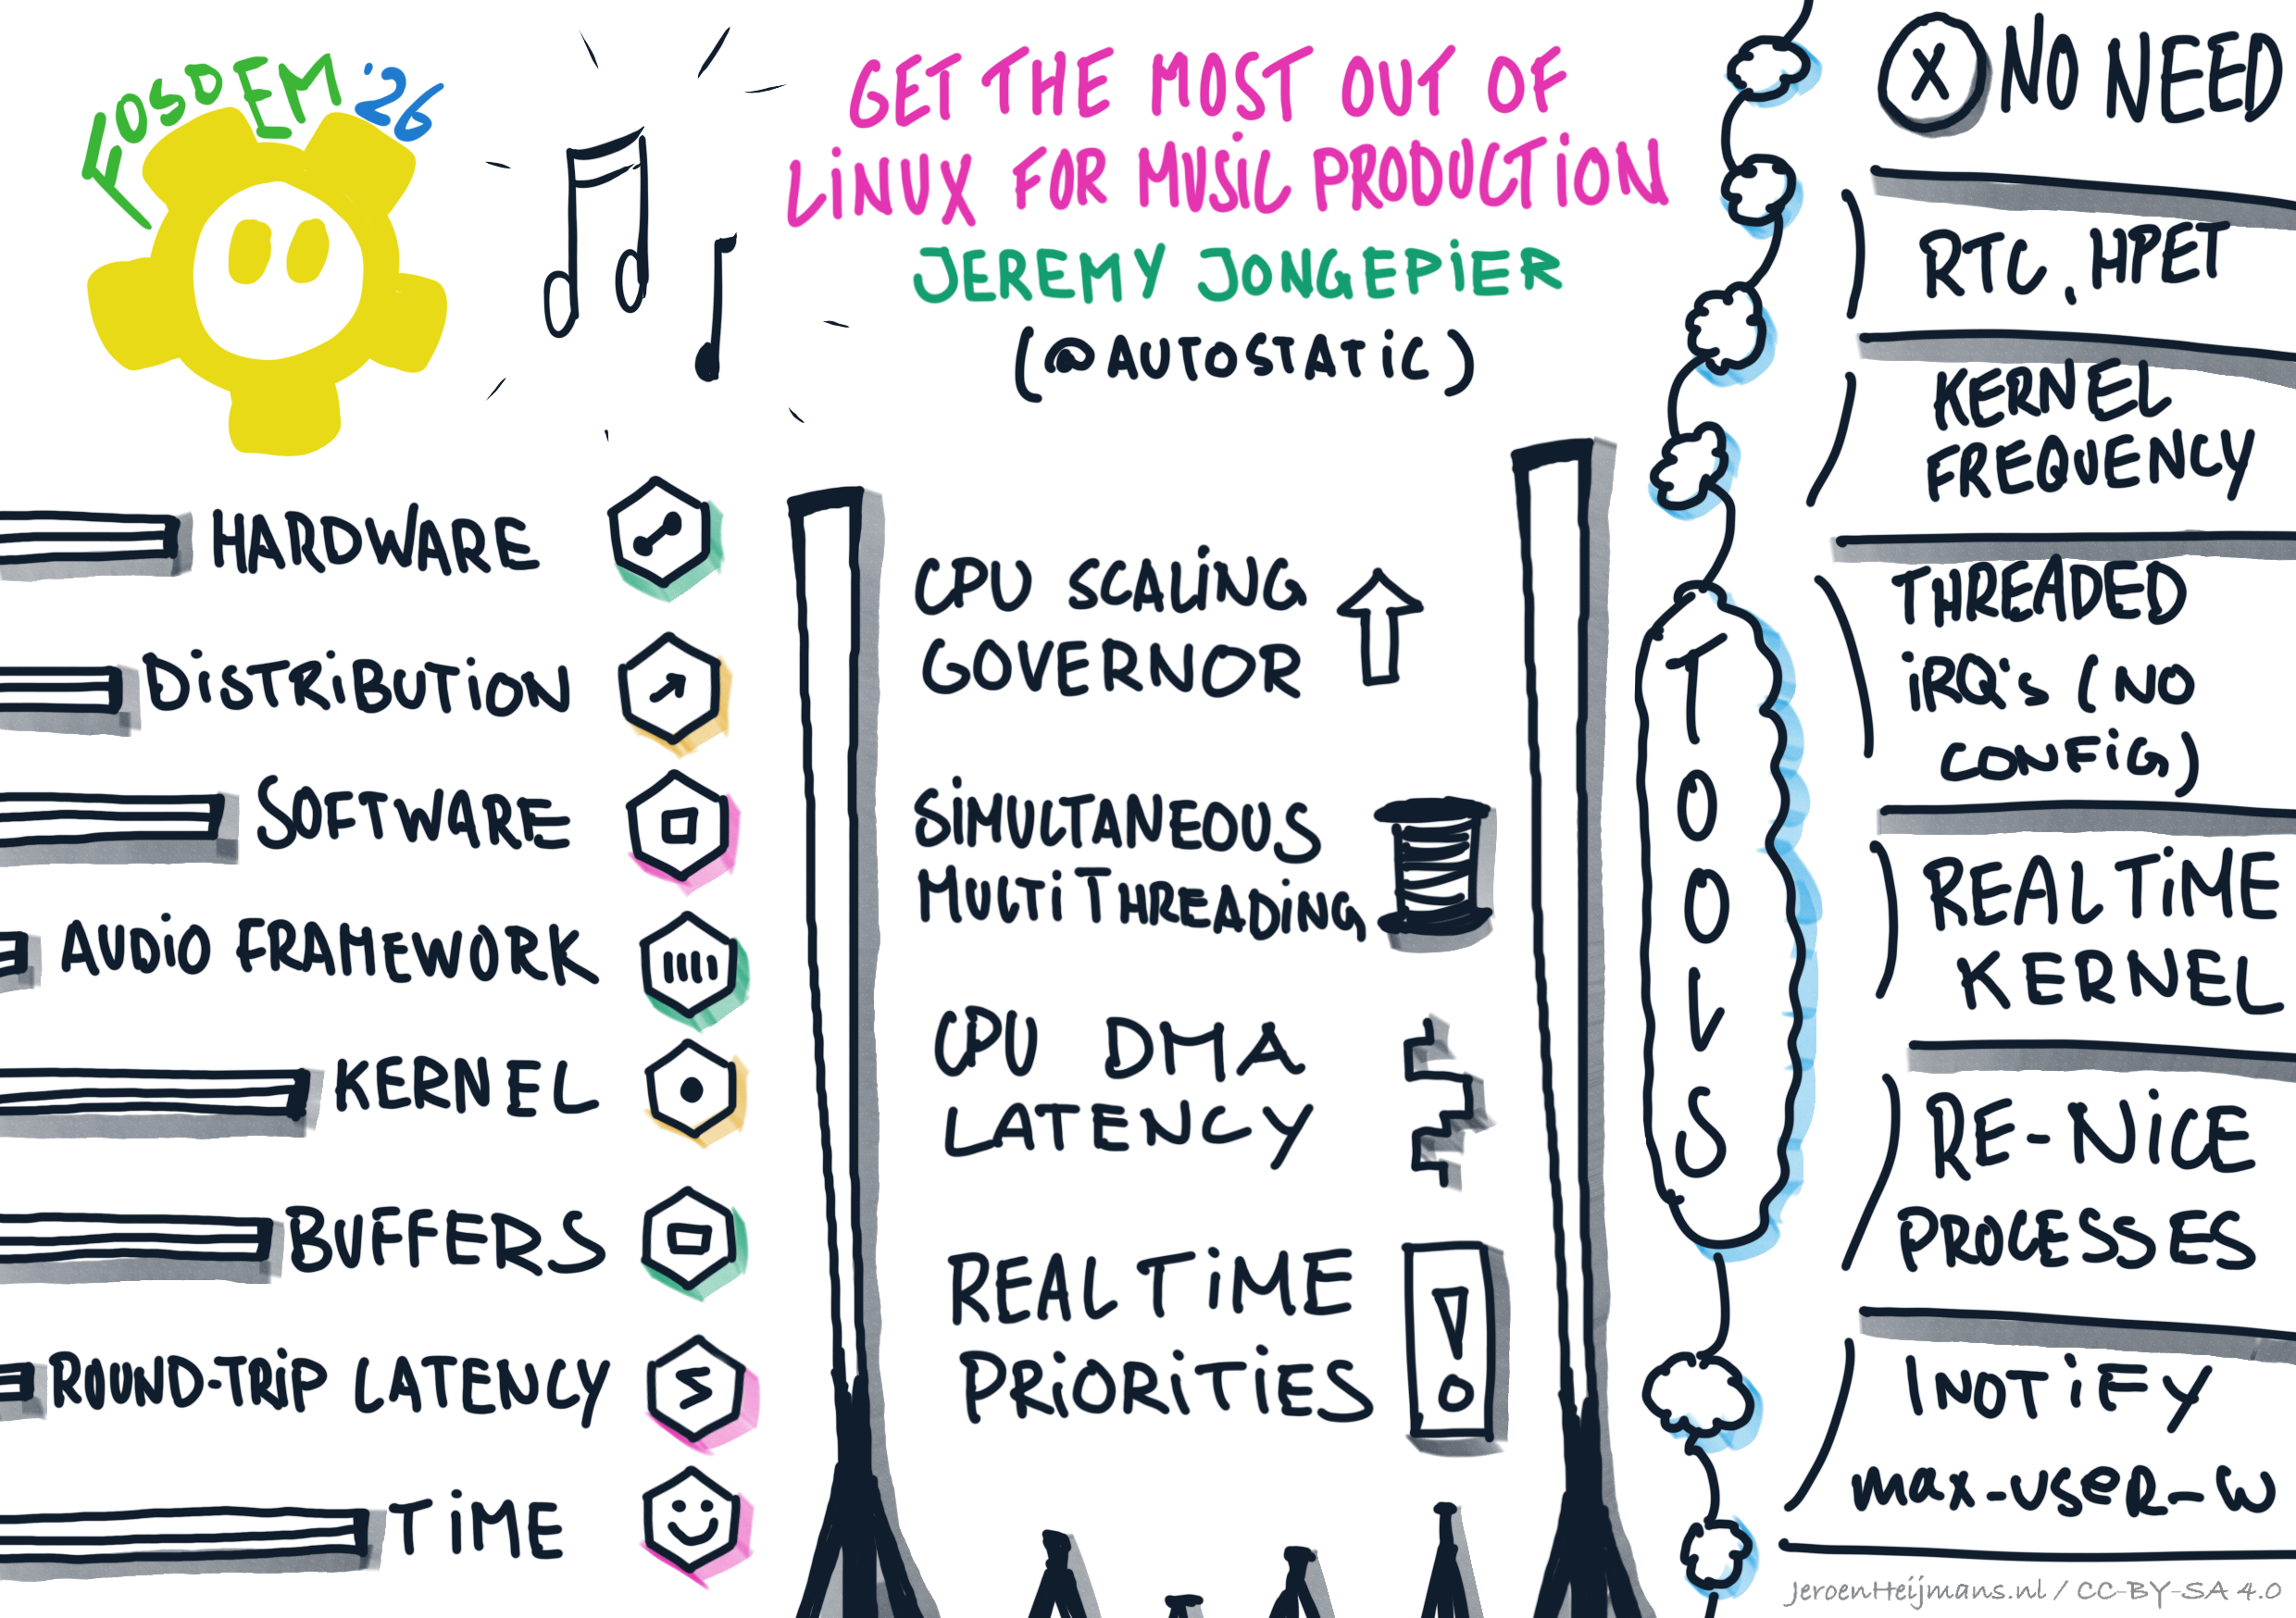 FOSDEM '26
GET THE MOST OUT OF
LINUX FOR MUSIC PRODUCTION
JEREMY JONGEPIER
(@AUTOSTATIC)
HARDWARE
DISTRIBUTION
SOFTWARE
AUDIO FRAMEWORK
KERNEL
BUFFERS
ROUND-TRIP LATENCY
TIME
CPU SCALING
GOVERNOR
SIMULTANEOUS
MULTITHREADING
CPU DMA
LATENCY
REALTIME
PRIORITIES
TOOLS
X NO NEED
RTC, HPET
KERNEL
FREQUENCY
THREADED
IRQ's (NO
CONFIG)
REALTIME
KERNEL
RE-NICE
PROCESSES
INOTIFY
max-user-w
JeroenHeijmans.nl / CC-BY-SA 4.0